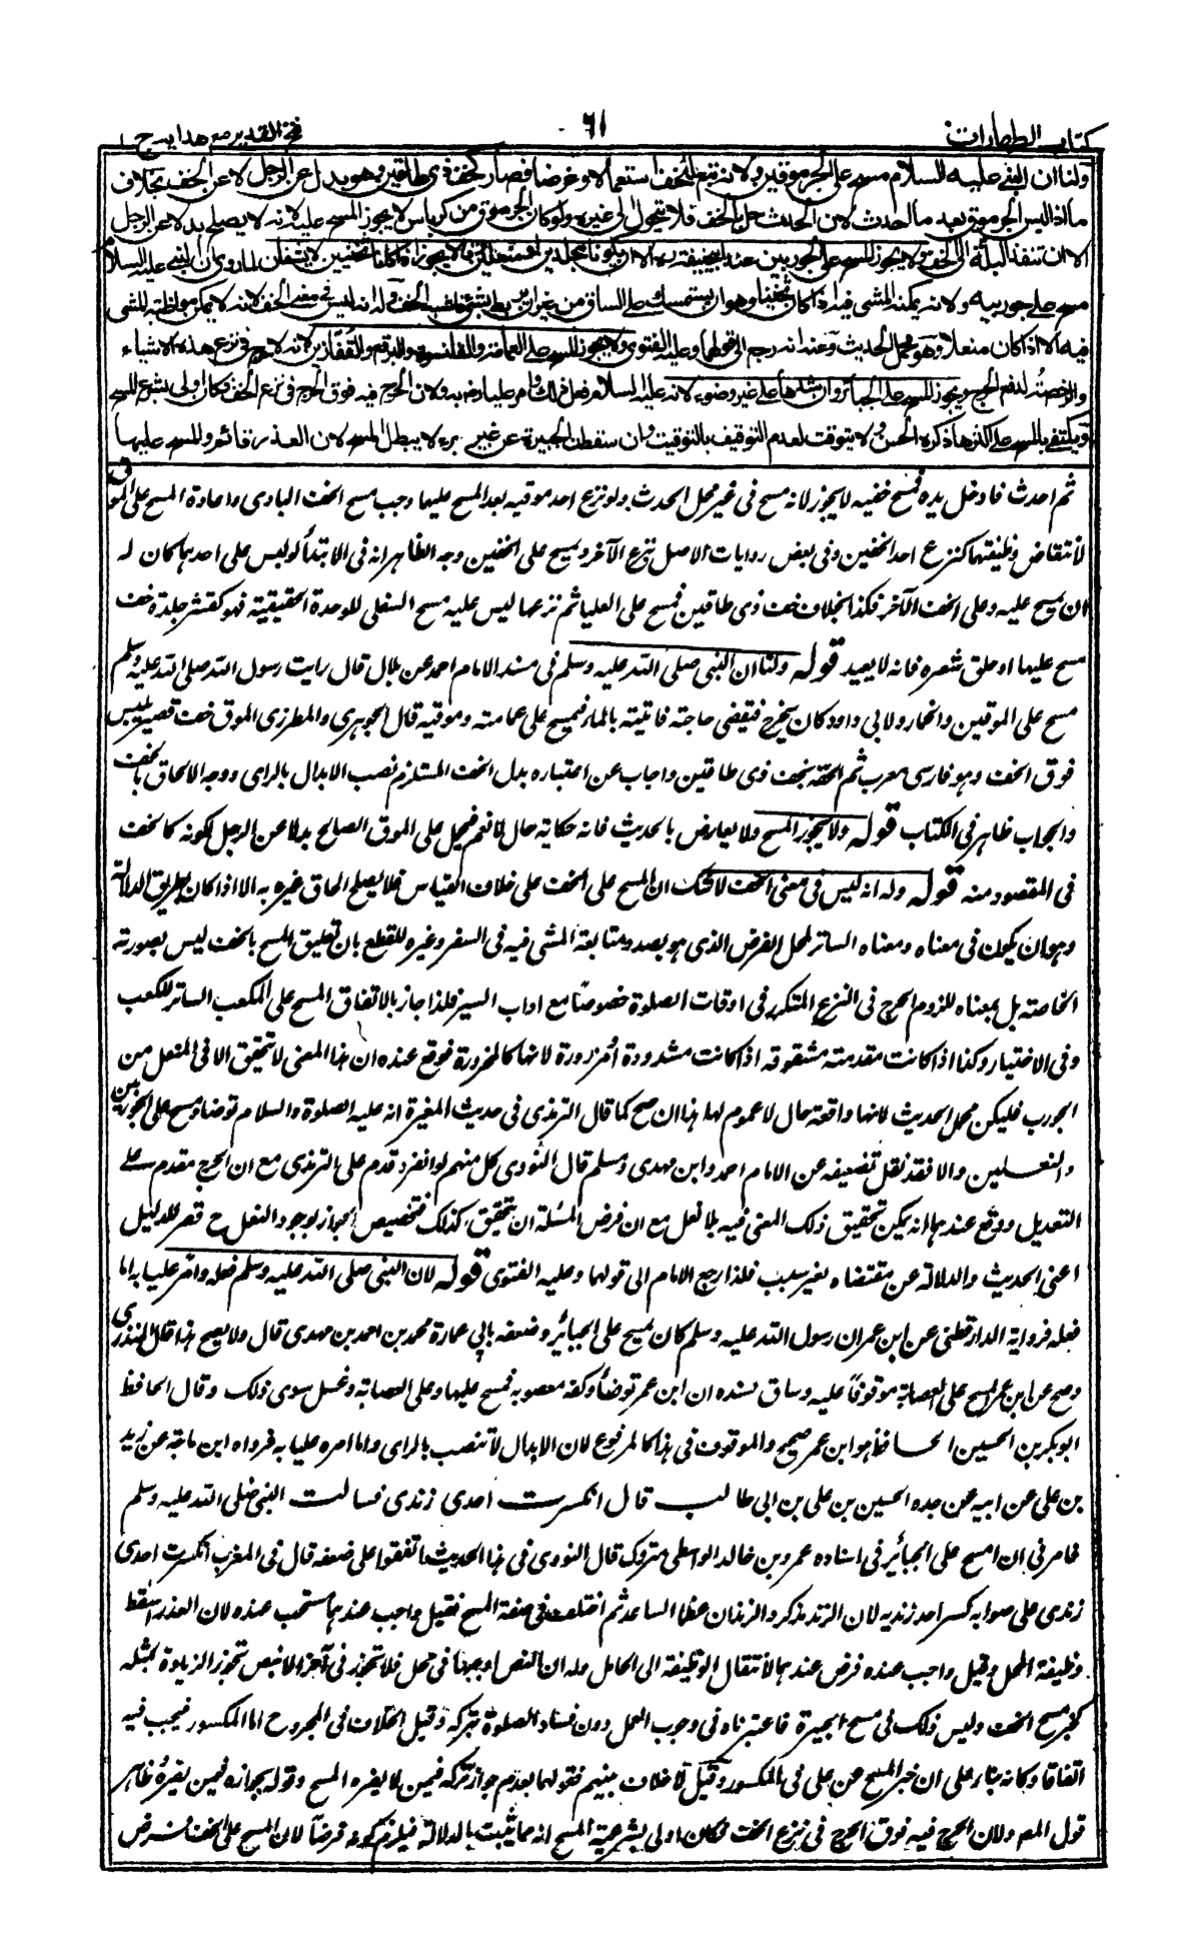 كتاب الطهارات
٦١
فتح القدير مع هدايه ج ١
ولنا ان النبي عليه السلام مسح على الجرموقين ولانه تبع للخف استعمالا وغرضا فصار كخف ذي طاقين وهو بدل عن الرجل لا عن الخف بخلاف
ما اذا لبس الجرموق بعد ما احدث لان الحدث حل بالخف فلا يتحول الى غيره ولو كان الجرموق من كرباس لا يجوز المسح عليه لانه لا يصلح بدلا عن الرجل
الا ان تنفذ البلة الى الخف ولا يجوز المسح على الجوربين عند ابي حنيفة رح الا ان يكونا مجلدين او منعلين وقالا يجوز اذا كانا ثخينين لا يشفان لما روي ان النبي عليه السلام
مسح على جوربيه ولانه يمكنه المشي فيه اذا كان ثخينا وهو ان يستمسك على الساق من غير ان يربط بشئ فاشبه الخف وله انه ليس في معنى الخف لانه لا يمكن مواظبة المشي
فيه الا اذا كان منعلا وهو محمل الحديث وعنه انه رجع الى قولهما وعليه الفتوى ولا يجوز المسح على العمامة والقلنسوة والبرقع والقفازين لانه لا حرج في نزع هذه الاشياء
والرخصة لدفع الحرج ويجوز المسح على الجبائر وان شدها على غير وضوء لانه عليه السلام فعل ذلك وامر عليا رض به ولان الحرج فيه فوق الحرج في نزع الخف فكان اولى بشرع المسح
ويكتفى بالمسح على اكثرها ذكره الحسن ولا يتوقت لعدم التوقيف بالتوقيت وان سقطت الجبيرة عن غير برء لا يبطل المسح لان العذر قائم والمسح عليها
ثم احدث فادخل يده فمسح خفيه لا يجوز لانه مسح في غير محل الحدث ولو نزع احد موقيه بعد المسح عليهما وجب مسح الخف البادي واعادة المسح على الموق
لانتقاض وظيفتهما كنزع احد الخفين وفي بعض روايات الاصل نزع الآخر ويمسح على الخفين وجه الظاهر انه في الابتداء لو لبس على احدهما كان له
ان يمسح عليه وعلى الخف الآخر فكذا بخلاف خف ذي طاقين فمسح على العليا ثم نزعها ليس عليه مسح السفلى للوحدة الحقيقية فهو كقشر جلدة خف
مسح عليها او حلق شعره فانه لا يعيد قوله ولنا ان النبي صلى الله عليه وسلم في مسند الامام احمد عن بلال قال رايت رسول الله صلى الله عليه وسلم
مسح على الموقين والخمار ولابي داود كان يخرج فيقضي حاجته فاتيته بالماء فيمسح على عمامته وموقيه قال الجوهري والمطرزي الموق خف قصير يلبس
فوق الخف وهو فارسي معرب ثم الحقه بخف ذي طاقين واجاب عن اعتباره بدل الخف المستلزم نصب الابدال بالراي ووجه الالحاق بالخف
والجواب ظاهر في الكتاب قوله ولا يجوز المسح ولا يعارض بالحديث فانه حكاية حال لا تعم فيحمل على الموق الصالح بدلا عن الرجل لكونه كالخف
في المقصود منه قوله وله انه ليس في معنى الخف لا شك ان المسح على الخف على خلاف القياس فلا يصلح الحاق غيره به الا اذا كان بطريق الدلالة
وهو ان يكون في معناه ومعناه الساتر لمحل الفرض الذي هو بصدد متابعة المشي فيه في السفر وغيره للقطع بان تعليق المسح بالخف ليس بصورته
الخاصة بل بمعناه للزوم الحرج في النزع المتكرر في اوقات الصلوة خصوصا مع اداب السير فلذا جاز بالاتفاق المسح على المكعب الساتر للكعب
وفي الاختيار وكذا اذا كانت مقدمته مشقوقة اذا كانت مشدودة او مزرورة لانها كالمخروزة فوقع عنده ان هذا المعنى لا يتحقق الا في المنعل من
الجورب فليكن محمل الحديث لانها واقعة حال لا عموم لها هذا ان صح كما قال الترمذي في حديث المغيرة انه عليه الصلوة والسلام توضا ومسح على الجوربين
والنعلين والا فقد نقل تضعيفه عن الامام احمد وابن مهدي ومسلم قال النووي كل منهم لو انفرد قدم على الترمذي مع ان الجرح مقدم على
التعديل ووقع عندهما انه يمكن تحقيق ذلك المعنى فيه بلا نعل مع ان فرض المسئلة ان يتحقق كذلك فتخصيص الجواز بوجود النعل ح قصر للدليل
اعني الحديث والدلالة عن مقتضاه بغير سبب فلذا رجع الامام الى قولهما وعليه الفتوى قوله لان النبي صلى الله عليه وسلم فعله وامر عليا به اما
فعله فرواية الدارقطني عن ابن عمر ان رسول الله عليه وسلم كان يمسح على الجبائر وضعفه بابي عمارة محمد بن احمد بن مهدي قال ولا يصح هذا قال المنذري
وصح عن ابن عمر المسح على العصابة موقوفا عليه وساق بسنده ان ابن عمر توضأ وكفه معصوبه فمسح عليها وعلى العصابة وغسل سوى ذلك وقال الحافظ
ابو بكر بن الحسين الحافظ هو ابن عمر صحيح والموقوف في هذا كالمرفوع لان الابدال لا تنصب بالراي واما امره عليا به فرواه ابن ماجة عن زيد
بن علي عن ابيه عن جده الحسين بن علي بن ابي طالب قال انكسرت احدى زندي فسالت النبي صلى الله عليه وسلم
فامرني ان امسح على الجبائر في اسناده عمرو بن خالد الواسطي متروك قال النووي في هذا الحديث اتفقوا على ضعفه قال في المغرب انكسرت احدى
زندي علي صوابه كسر احد زنديه لان الزند مذكر والزندان عظما الساعد ثم اختلف في صفة المسح فقيل واجب عندهما مستحب عنده لان العذر اسقط
وظيفة المحل وقيل واجب عنده فرض عندهما لانتقال الوظيفة الى الحائل وله ان النص اوجبها في محل فلا تجوز في آخر الا بنص تجوز الزيادة بمثله
كخبر مسح الخف وليس ذلك في مسح الجبيرة فاعتبرناه في وجوب العمل دون فساد الصلوة بتركه وقيل الخلاف في المجروح اما المكسور فيجب فيه
اتفاقا وكانه بناء على ان خبر المسح عن علي في المكسور وقيل لا خلاف بينهم فقولهما بعدم جواز تركه فيمن لا يضره المسح وقوله بجوازه فيمن يضره ظاهر
قول المص ولان الحرج فيه فوق الحرج في نزع الخف فكان اولى بشرعية المسح انه مما يثبت بالدلالة فيلزم كونه فرضا لان المسح على الخف فرض